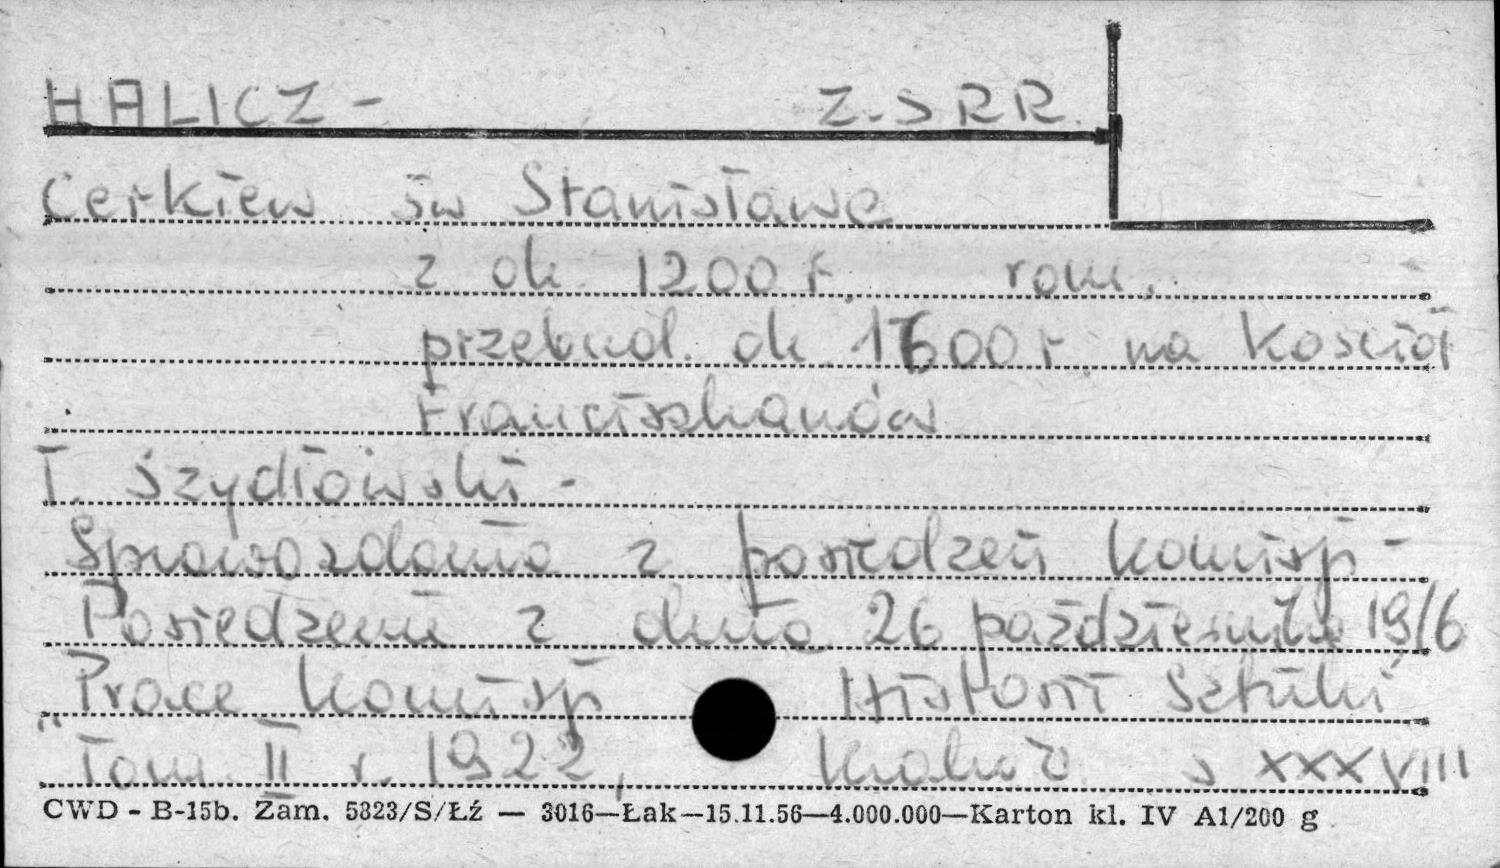 HALICZ - Z.SRR.
Cerkiew św Stanisława
z ok 1200 r. rom.
przebud. ok 1600 r. na Kościół
Franciszkanów
T. Szydłowski -
Sprawozdania z posiedzeń komisji -
Posiedzenie z dnia 26 października 1916
"Prace Komisji Historii Sztuki"
Tom II r. 1922, Kraków s XXXVIII
CWD - B-15b. Zam. 5823/S/Łź — 3016—Łak—15.11.56—4.000.000—Karton kl. IV A1/200 g